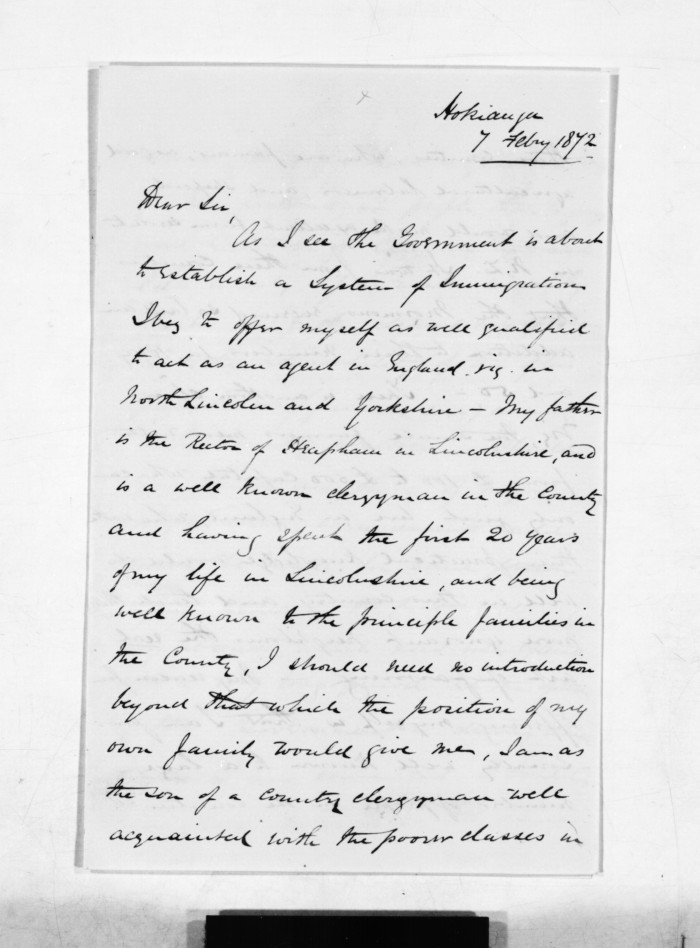 Hokianga
7 Febry 1872
Dear Sir,
As I see the Government is about
to establish a System of Immigration
I beg to offer myself as well qualified
to act as an agent in England. viz. in
North Lincoln and Yorkshire – My father
is the Rector of Heapham in Lincolnshire, and
is a well known clergyman in the County
and having spent the first 20 years
of my life in Lincolnshire, and being
well known to the principle families in
the County, I should need no introduction
beyond that which the position of my
own family would give me, I am as
the son of a country clergyman well
acquainted with the poorer classes in